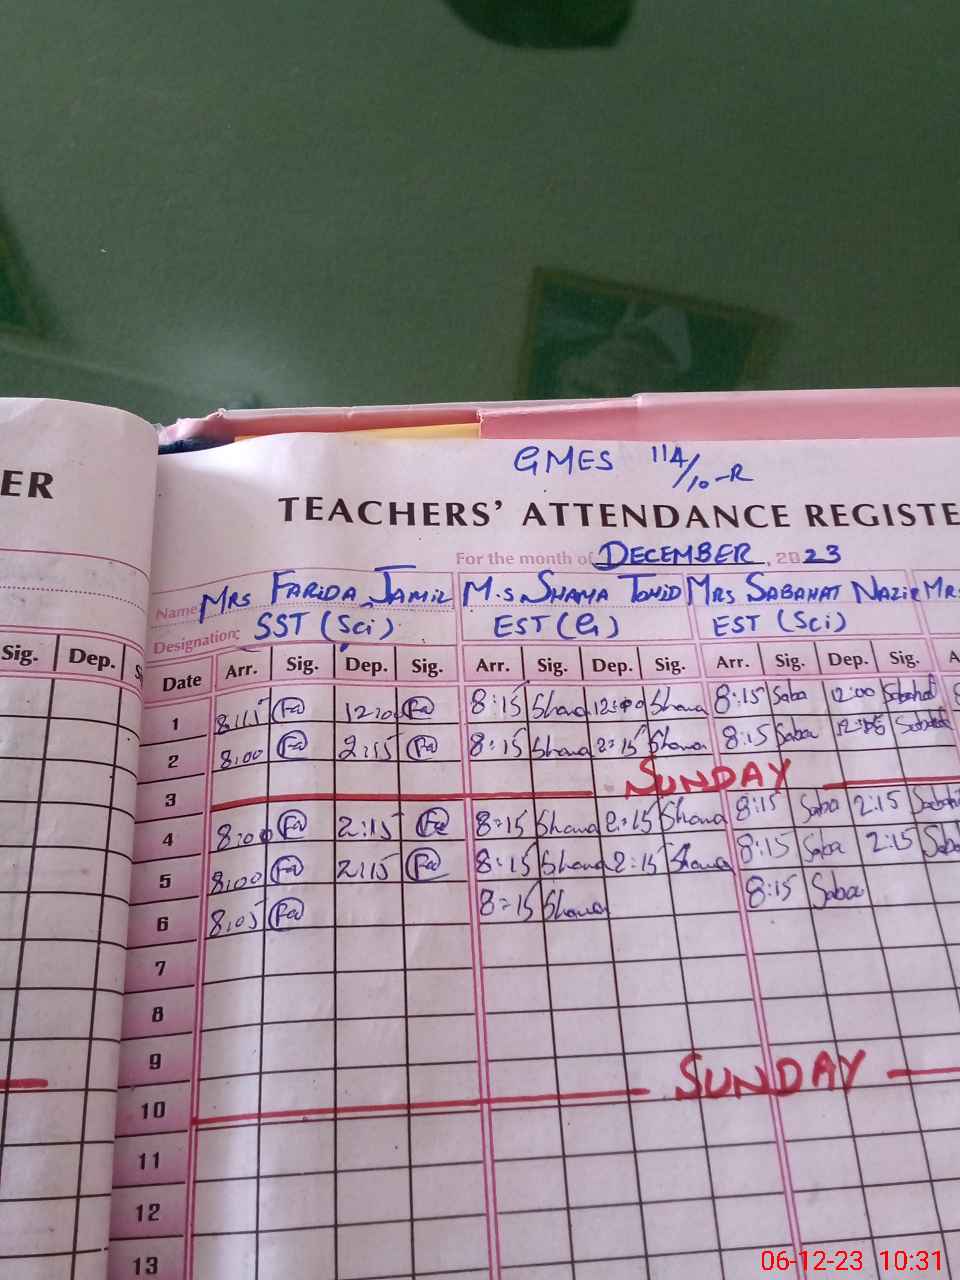 GMES 114/10-R
ER
TEACHERS' ATTENDANCE REGISTE
For the month of DECEMBER, 2023
Name Mrs FARIDA JAMIL M.S SHAMA TOHID MRS SABAHAT NAZIR MRS
Designation: SST (Sci) EST (G) EST (Sci)
Sig. Dep. S Date Arr. Sig. Dep. Sig. Arr. Sig. Dep. Sig. Arr. Sig. Dep. Sig. A
1 8:15 Fa 12:00 Fa 8:15 Shama 12:00 Shama 8:15 Saba 12:00 Sabahat 8
2 8:00 Fa 2:15 Fa 8:15 Shama 2:15 Shama 8:15 Saba Sabahat
3 SUNDAY
4 8:00 Fa 2:15 Fa 8:15 Shama 2:15 Shama 8:15 Saba 2:15 Sabahat
5 8:00 Fa 2:15 Fa 8:15 Shama 2:15 Shama 8:15 Saba 2:15 Saba
6 8:05 Fa 8:15 Shama 8:15 Saba
7
8
9
10 SUNDAY
11
12
13
06-12-23 10:31